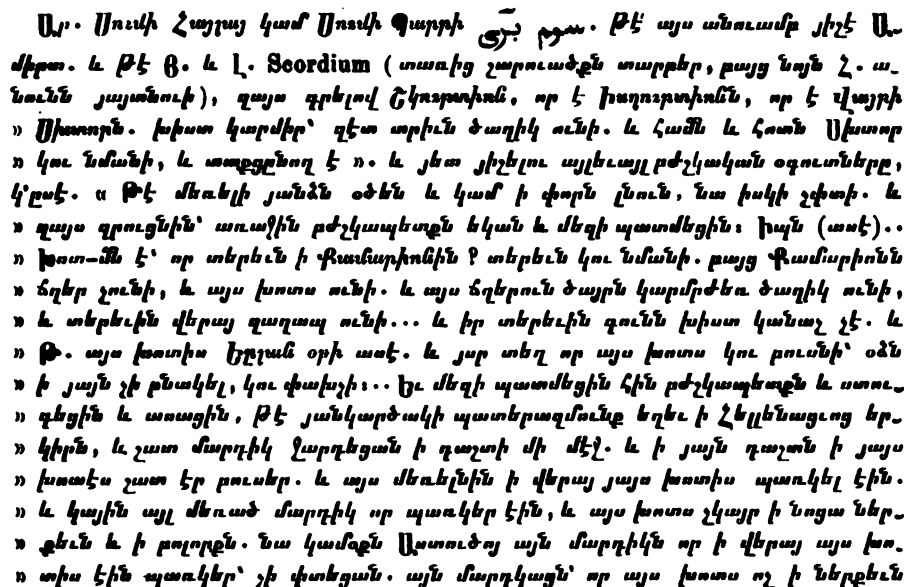 Ար. Սումի Հայլայ կամ Սումի Պարրի سوم بَرّى. Թէ այս անուամբ յիշէ Ա֊
միրտ. և Թէ Յ. և Լ. Scordium (տառից շարուածքն տարբեր, բայց նոյն Հ. ա֊
նունն յայտնուի), զայս գրելով Շկուրտիոն, որ է Իսղուրտիոնն, որ է Վայրի
» Սխտորն. խիստ կարմիր՝ զէտ արիւն ծաղիկ ունի. և համն և հոտն Սխտոր
» կու նմանի, և տաքցընող է ». և յետ յիշելու այլեւայլ բժշկական օգուտները,
կ՚ըսէ. « Թէ մեռելի յանձն օծեն և կամ ի փորն լնուն, նա իսկի չփտի. և
» զայս զրուցնին՝ առաջին բժշկապետքն եկան և մեզի պատմեցին։ Իպն (ասէ)..
» Խոտ-մն է՝ որ տերեւն ի Քամարիոնին ? տերեւն կու նմանի. բայց Քամարիոնն
» ճղեր չունի, և այս խոտս ունի. և այս ճղերուն ծայրն կարմրժեռ ծաղիկ ունի,
» և տերեւին վերայ զաղապ ունի... և իր տերեւին գունն խիստ կանաչ չէ. և
» Թ. այս խոտիս Երլան օթի ասէ. և յար տեղ որ այս խոտս կու բուսնի՝ օձն
» ի յայն չի բնակել, կու փախչի։.. Եւ մեզի պատմեցին հին բժշկապետքն և ստու֊
» գեցին և ասացին, Թէ յանկարծակի պատերազմունք եղեւ ի Հելլենացւոց եր֊
» կիրն, և շատ մարդիկ ջարդեցան ի դաշտի մի մէջ. և ի յայն դաշտն ի յայս
» խոտէս շատ էր բուսեր. և այս մեռելնին ի վերայ յայս խոտիս պառկել էին.
» և կային այլ մեռած մարդիկ որ պառկեր էին, և այս խոտս չկայր ի նոցա ներ֊
» քեւն և ի բոլորքն. նա կամօքն Աստուծոյ այն մարդիկն որ ի վերայ այս խո֊
» տիս էին պառկեր՝ չի փտեցան. այն մարդկացն՝ որ այս խոտս ոչ ի ներքեւն